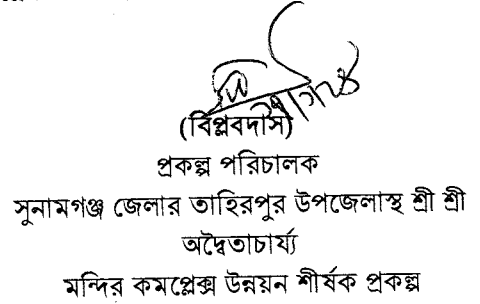 (বিপ্লবদাস)
প্রকল্প পরিচালক
সুনামগঞ্জ জেলার তাহিরপুর উপজেলাস্থ শ্রী শ্রী
অদ্বৈতাচার্য্য
মন্দির কমপ্লেক্স উন্নয়ন শীর্ষক প্রকল্প